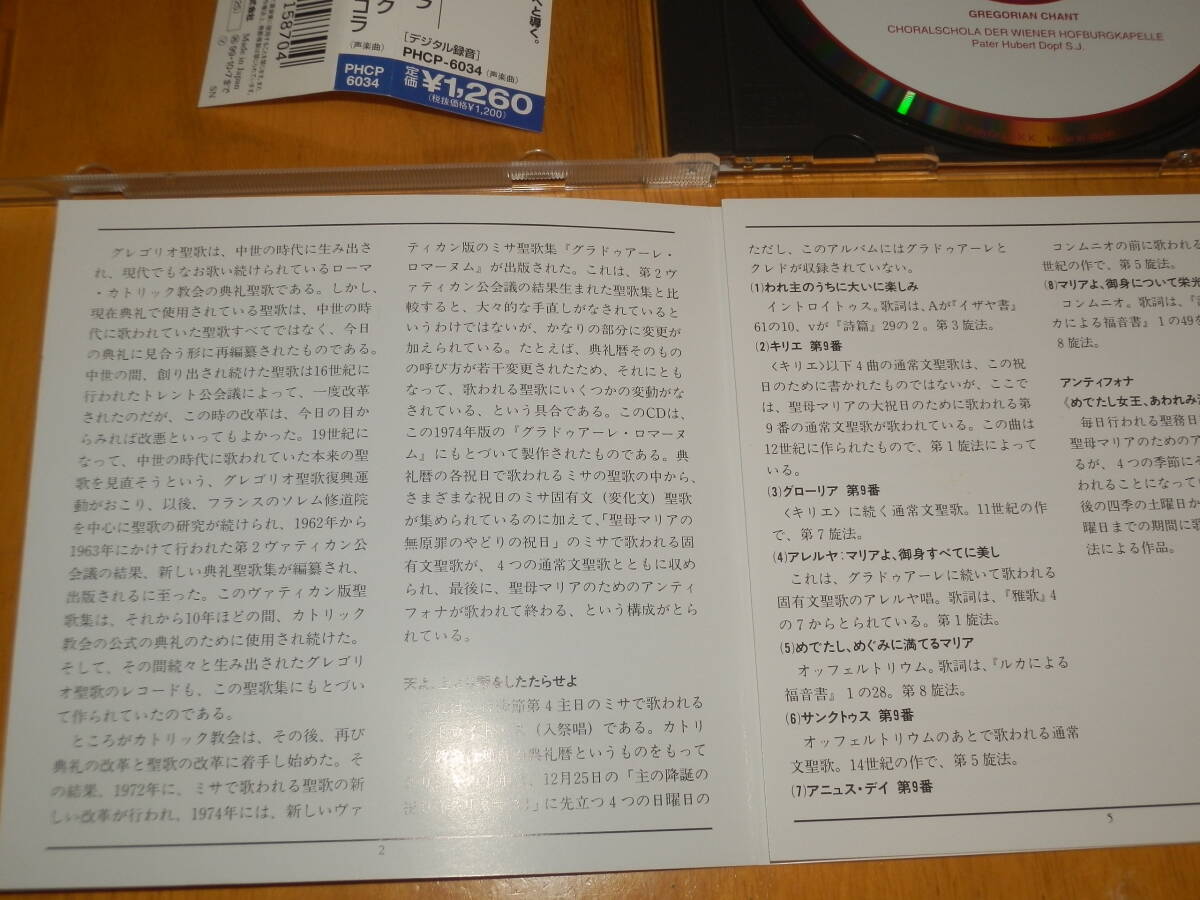 へと導く。
[デジタル録音]
PHCP-6034 (声楽曲)
定価 ¥1,260
(税抜価格¥1,200)
ク
コラ
(声楽曲)
PHCP
6034
158704
Made in Japan
SN
GREGORIAN CHANT
CHORALSCHOLA DER WIENER HOFBURGKAPELLE
Pater Hubert Dopf S.J.
グレゴリオ聖歌は、中世の時代に生み出さ
れ、現代でもなお歌い続けられているローマ
・カトリック教会の典礼聖歌である。しかし、
現在典礼で使用されている聖歌は、中世の時
代に歌われていた聖歌すべてではなく、今日
の典礼に見合う形に再編纂されたものである。
中世の間、創り出され続けた聖歌は16世紀に
行われたトレント公会議によって、一度改革
されたのだが、この時の改革は、今日の目か
らみれば改悪といってもよかった。19世紀に
なって、中世の時代に歌われていた本来の聖
歌を見直そうという、グレゴリオ聖歌復興運
動がおこり、以後、フランスのソレム修道院
を中心に聖歌の研究が続けられ、1962年から
1963年にかけて行われた第2ヴァティカン公
会議の結果、新しい典礼聖歌集が編纂され、
出版されるに至った。このヴァティカン版聖
歌集は、それから10年ほどの間、カトリック
教会の公式の典礼のために使用され続けた。
そして、その間続々と生み出されたグレゴリ
オ聖歌のレコードも、この聖歌集にもとづい
て作られていたのである。
ところがカトリック教会は、その後、再び
典礼の改革と聖歌の改革に着手し始めた。そ
の結果、1972年に、ミサで歌われる聖歌の新
しい改革が行われ、1974年には、新しいヴァ
ティカン版のミサ聖歌集『グラドゥアーレ・
ロマーヌム』が出版された。これは、第2ヴ
ァティカン公会議の結果生まれた聖歌集と比
較すると、大々的な手直しがなされていると
いうわけではないが、かなりの部分に変更が
加えられている。たとえば、典礼暦そのもの
の呼び方が若干変更されたため、それにとも
なって、歌われる聖歌にいくつかの変動がな
されている、という具合である。このCDは、
この1974年版の『グラドゥアーレ・ロマーヌ
ム』にもとづいて製作されたものである。典
礼暦の各祝日で歌われるミサの聖歌の中から、
さまざまな祝日のミサ固有文（変化文）聖歌
が集められているのに加えて、「聖母マリアの
無原罪のやどりの祝日」のミサで歌われる固
有文聖歌が、4つの通常文聖歌とともに収め
られ、最後に、聖母マリアのためのアンティ
フォナが歌われて終わる、という構成がとら
れている。
をしたたらせよ
節第4主日のミサで歌われる
（入祭唱）である。カトリ
典礼暦というものをもって
、12月25日の「主の降誕の
」に先立つ4つの日曜日の
2
ただし、このアルバムにはグラドゥアーレと
クレドが収録されていない。
(1)われ主のうちに大いに楽しみ
イントロイトゥス。歌詞は、Aが『イザヤ書』
61の10、vが『詩篇』29の2。第3旋法。
(2)キリエ 第9番
〈キリエ〉以下4曲の通常文聖歌は、この祝
日のために書かれたものではないが、ここで
は、聖母マリアの大祝日のために歌われる第
9番の通常文聖歌が歌われている。この曲は
12世紀に作られたもので、第1旋法によって
いる。
(3)グローリア 第9番
〈キリエ〉に続く通常文聖歌。11世紀の作
で、第7旋法。
(4)アレルヤ：マリアよ、御身すべてに美し
これは、グラドゥアーレに続いて歌われる
固有文聖歌のアレルヤ唱。歌詞は、『雅歌』4
の7からとられている。第1旋法。
(5)めでたし、めぐみに満てるマリア
オッフェルトリウム。歌詞は、『ルカによる
福音書』1の28。第8旋法。
(6)サンクトゥス 第9番
オッフェルトリウムのあとで歌われる通常
文聖歌。14世紀の作で、第5旋法。
(7)アニュス・デイ 第9番
コンムニオの前に歌われる
世紀の作で、第5旋法。
(8)マリアよ、御身について栄光
コンムニオ。歌詞は、
カによる福音書』1の49を
8旋法。
アンティフォナ
《めでたし女王、あわれみ
毎日行われる聖務日
聖母マリアのためのア
るが、4つの季節にそ
われることになってい
後の四季の土曜日か
曜日までの期間に歌
法による作品。
5